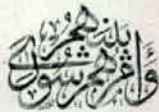 وَأَمْرُهُمْ شُورَى
بَيْنَهُمْ